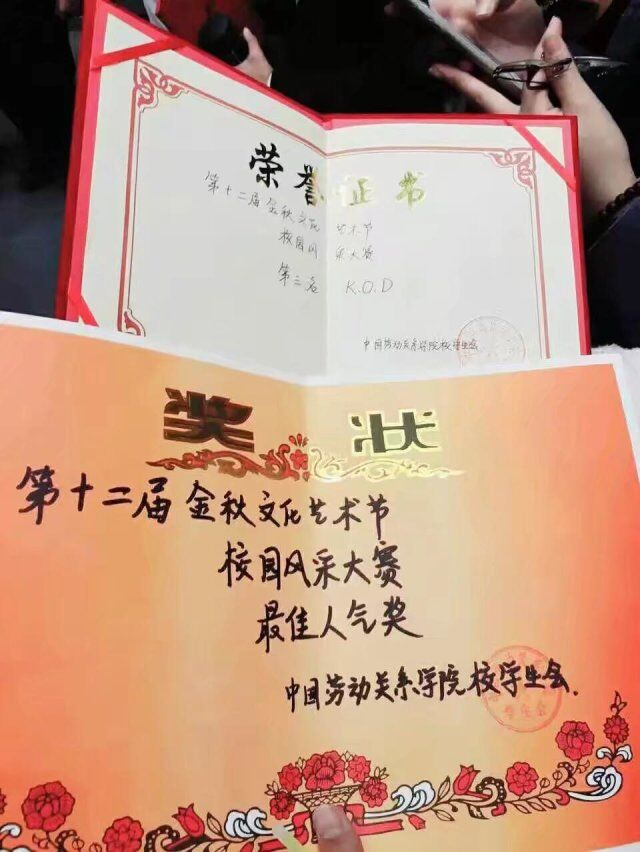 荣誉证书
第十二届金秋文化艺术节
校园风采大赛
第二名 K.O.D
中国劳动关系学院校学生会
奖状
第十二届金秋文化艺术节
校园风采大赛
最佳人气奖
中国劳动关系学院校学生会.
学生会